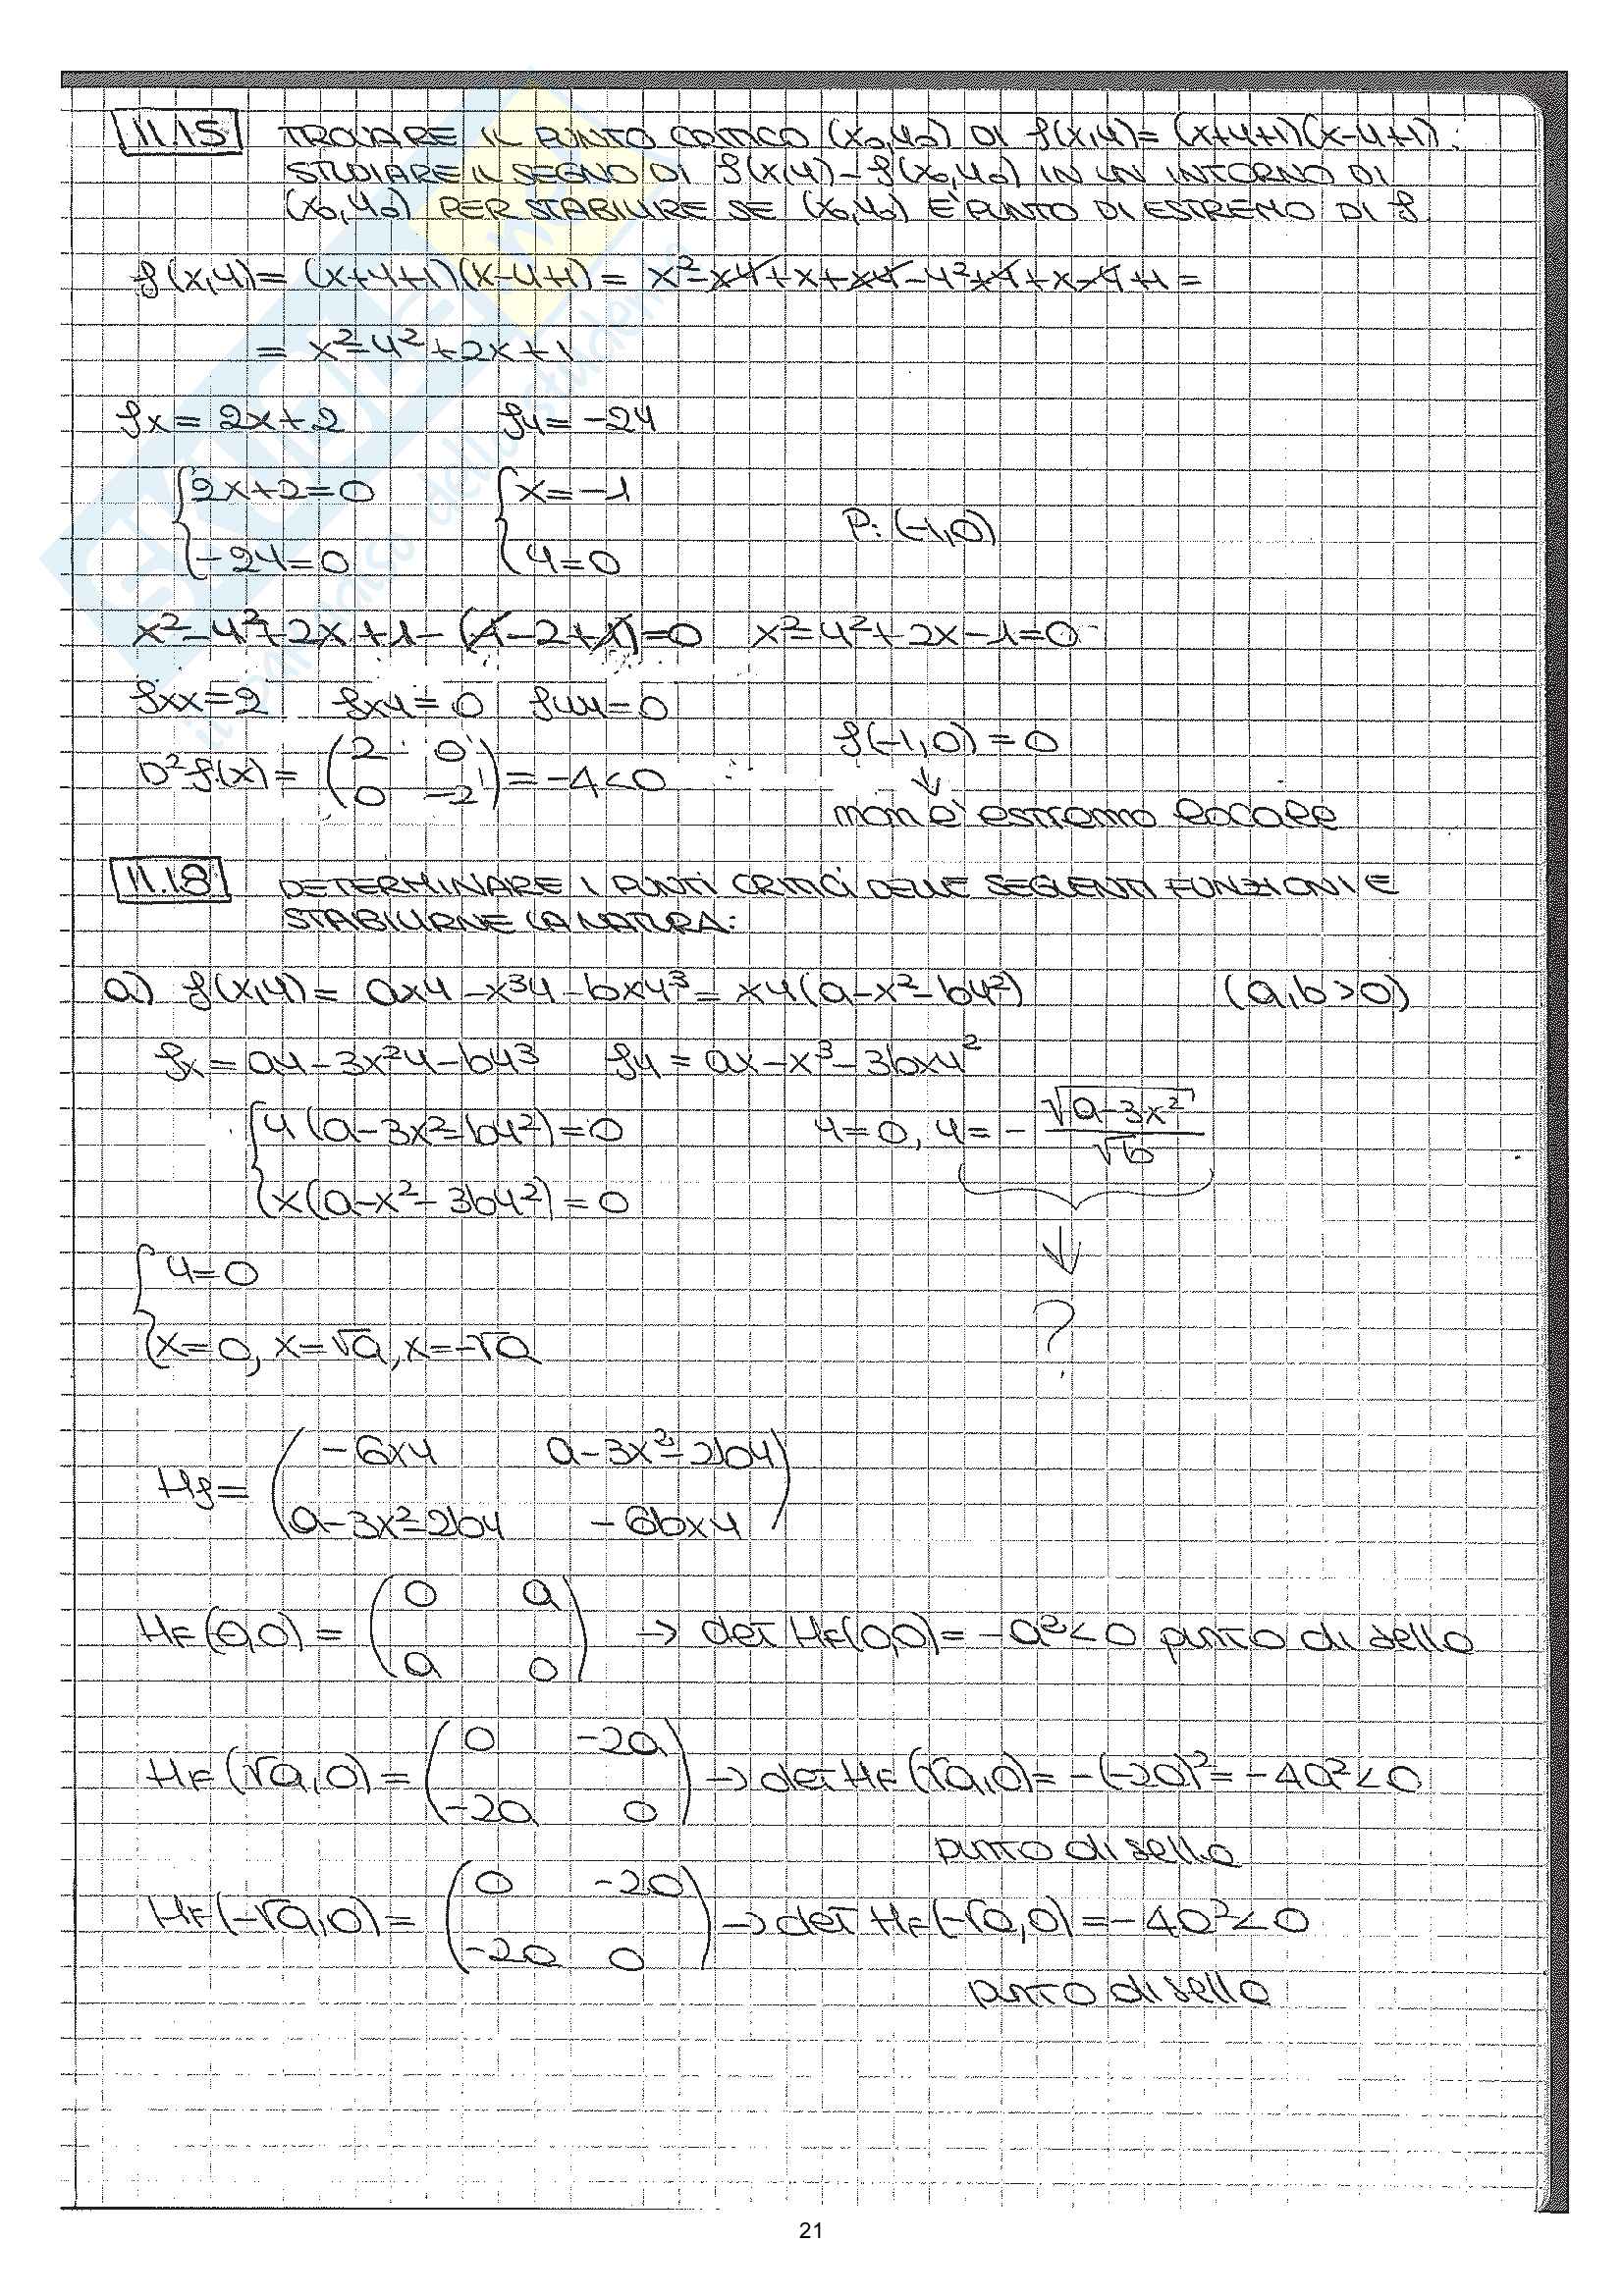 11.15 TROVARE IL PUNTO CRITICO (x₀,y₀) DI f(x,y)=(x+y+1)(x-y+1).
STUDIARE IL SEGNO DI f(x,y)-f(x₀,y₀) IN UN INTORNO DI
(x₀,y₀) PER STABILIRE SE (x₀,y₀) E' PUNTO DI ESTREMO DI f
f(x,y)= (x+y+1)(x-y+1)= x²-xy+x+xy-y²+y+x-y+1=
= x²-y²+2x+1
fx= 2x+2 fy= -2y
{2x+2=0 {x=-1
P: (-1,0)
-2y=0 y=0
x²-y²+2x+1-(1-2+1)=0 x²-y²+2x-1=0
fxx=2 fxy=0 fyy=0
f(-1,0)=0
D²f(x)= (2 0
0 -2) = -4<0
non è estremo locale
11.18 DETERMINARE I PUNTI CRITICI DELLE SEGUENTI FUNZIONI E
STABILIRNE LA NATURA:
a) f(x,y)= axy-x³y-bxy³= xy(a-x²-by²) (a,b>0)
fx= ay-3x²y-by³ fy= ax-x³-3bxy²
{y(a-3x²-by²)=0 y=0, y= - √(a-3x²)/√b
x(a-x²-3by²)=0
{y=0
?
x=0, x=√a, x=-√a
Hf= (-6xy a-3x²-2by
a-3x²-2by -6bxy)
HF(0,0)= (0 a
a 0) → det HF(0,0)= -a²<0 punto di sella
HF(√a,0)= (0 -2a
-2a 0) → det HF(√a,0)= -(-2a)²= -4a²<0
punto di sella
HF(-√a,0)= (0 -2a
-2a 0) → det HF(-√a,0)= -4a²<0
punto di sella
21